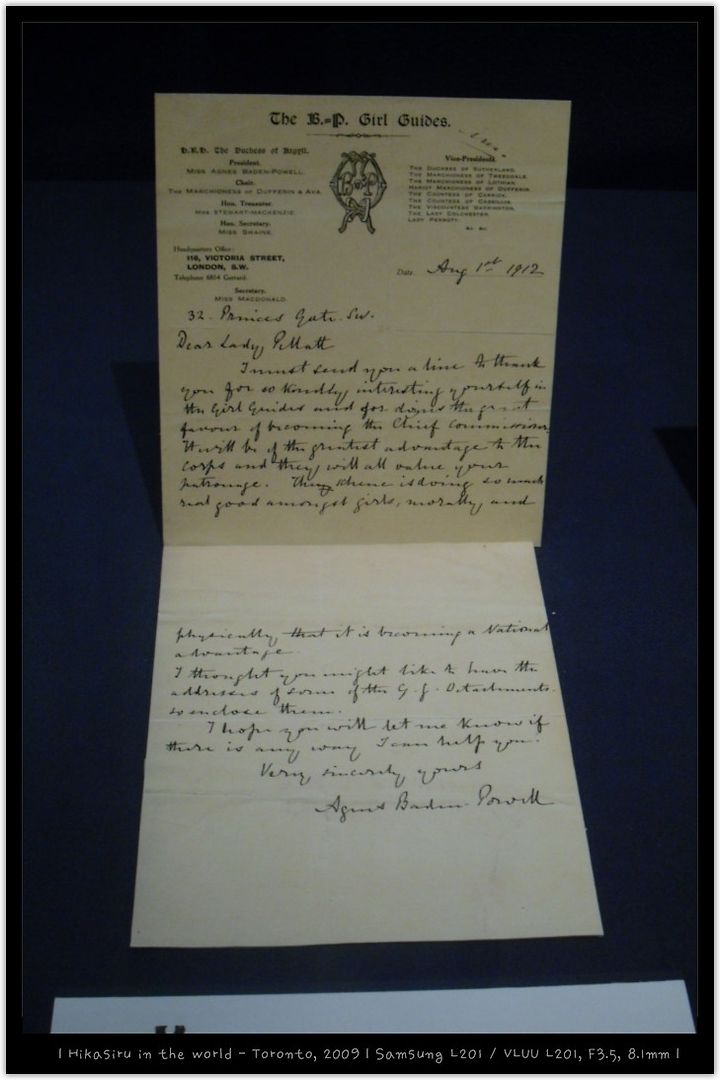 The B.=P. Girl Guides.
H.R.H. The Duchess of Argyll.
President.
MISS AGNES BADEN-POWELL.
Chair.
THE MARCHIONESS OF DUFFERIN & AVA.
Hon. Treasurer.
MRS STEWART-MACKENZIE.
Hon. Secretary.
MISS SWAINE.
Headquarters Office:
116, VICTORIA STREET,
LONDON, S.W.
Telephone 6854 Gerrard.
Secretary.
MISS MACDONALD.
B P
Vice-Presidents.
THE DUCHESS OF SUTHERLAND.
THE MARCHIONESS OF TWEEDDALE.
THE MARCHIONESS OF LOTHIAN.
HARIOT MARCHIONESS OF DUFFERIN.
THE COUNTESS OF CARRICK.
THE COUNTESS OF CASSILLIS.
THE VISCOUNTESS BARRINGTON.
THE LADY COLCHESTER.
LADY PERROTT.
&c. &c.
Date. Aug 1st 1912
32. Princes Gate. S.W.
Dear Lady Pellatt
I must send you a line to thank
you for so kindly interesting yourself in
the Girl Guides and for doing the great
favour of becoming the Chief Commissioner.
It will be of the greatest advantage to the
corps and they will all value your
patronage. The scheme is doing so much
real good amongst girls, morally, and
physically, that it is becoming a National
advantage.
I thought you might like to have the
addresses of some of the G. G. Detachments.
so enclose them.
I hope you will let me know if
there is any way I can help you.
Very sincerely yours
Agnes Baden-Powell
| Hikasiru in the world - Toronto, 2009 | Samsung L201 / VLUU L201, F3.5, 8.1mm |